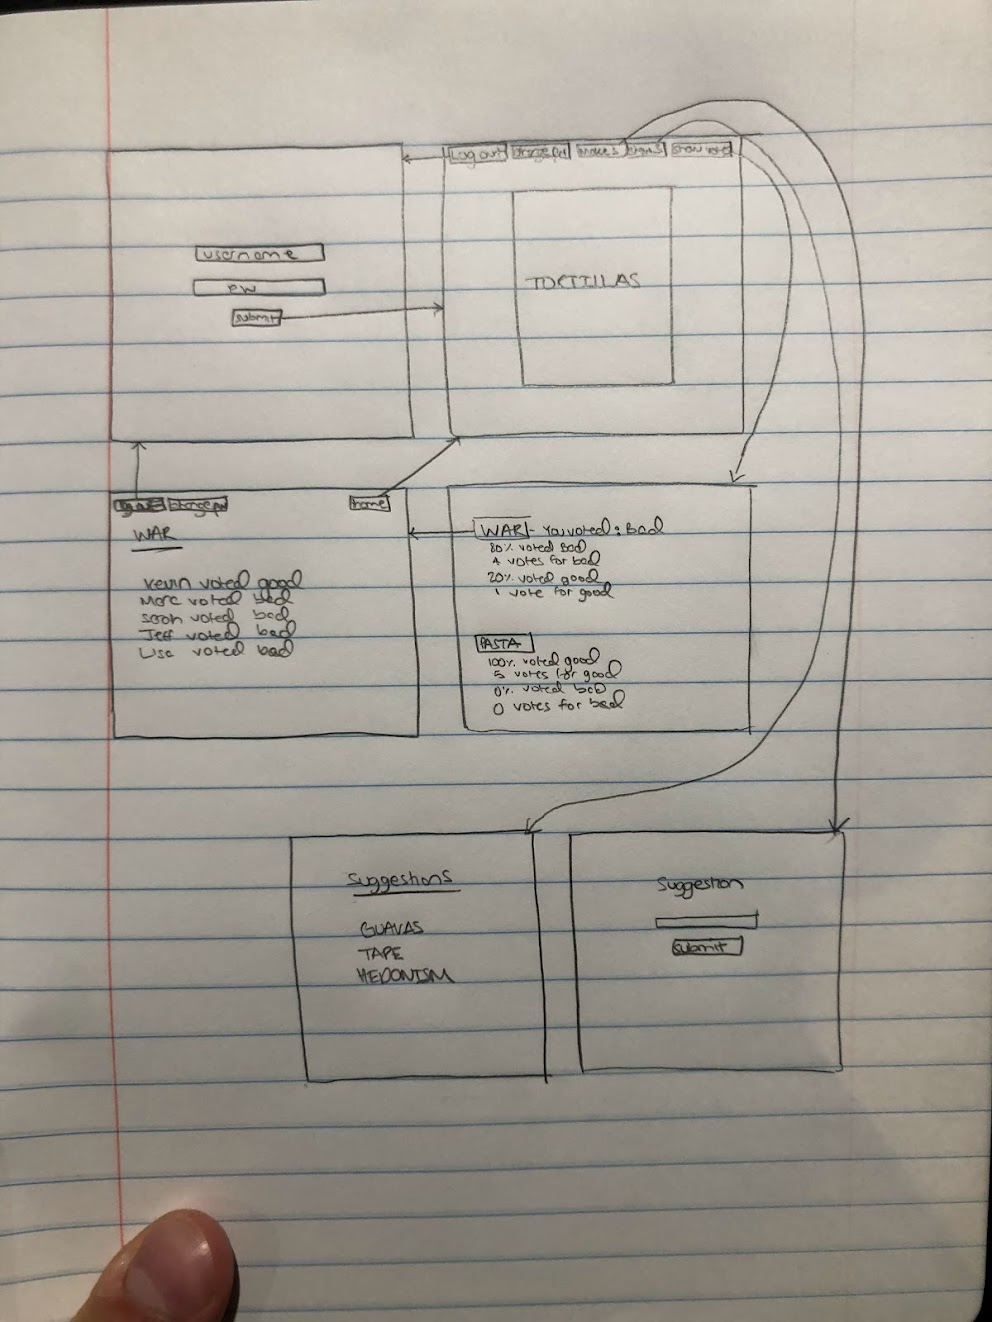 Log out change pw makes show
username
pw
submit
TORTILLAS
change pw home
WAR
Kevin voted good
Marc voted bad
voted bad
Jeff voted bad
Lisa voted bad
WAR - You voted: Bad
80% voted bad
4 votes for bad
20% voted good
1 vote for good
PASTA
100% voted good
5 votes for good
0% voted bad
0 votes for bad
Suggestions
GUAVAS
TAPE
HEDONISM
Suggestion
submit